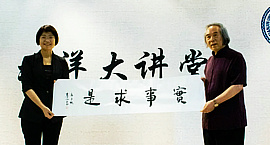 洋大讲堂
實事求是